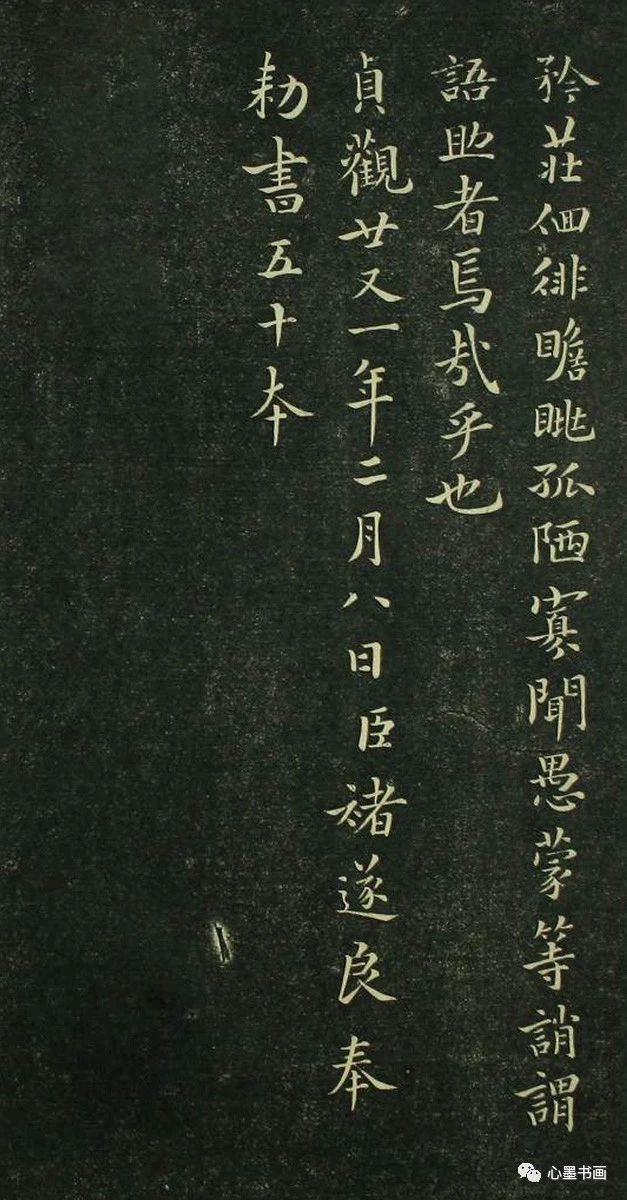 矜莊佪徘瞻眺孤陋寡聞愚蒙等誚謂
語助者焉哉乎也
貞觀廿又一年二月八日臣褚遂良奉
勑書五十本
心墨书画